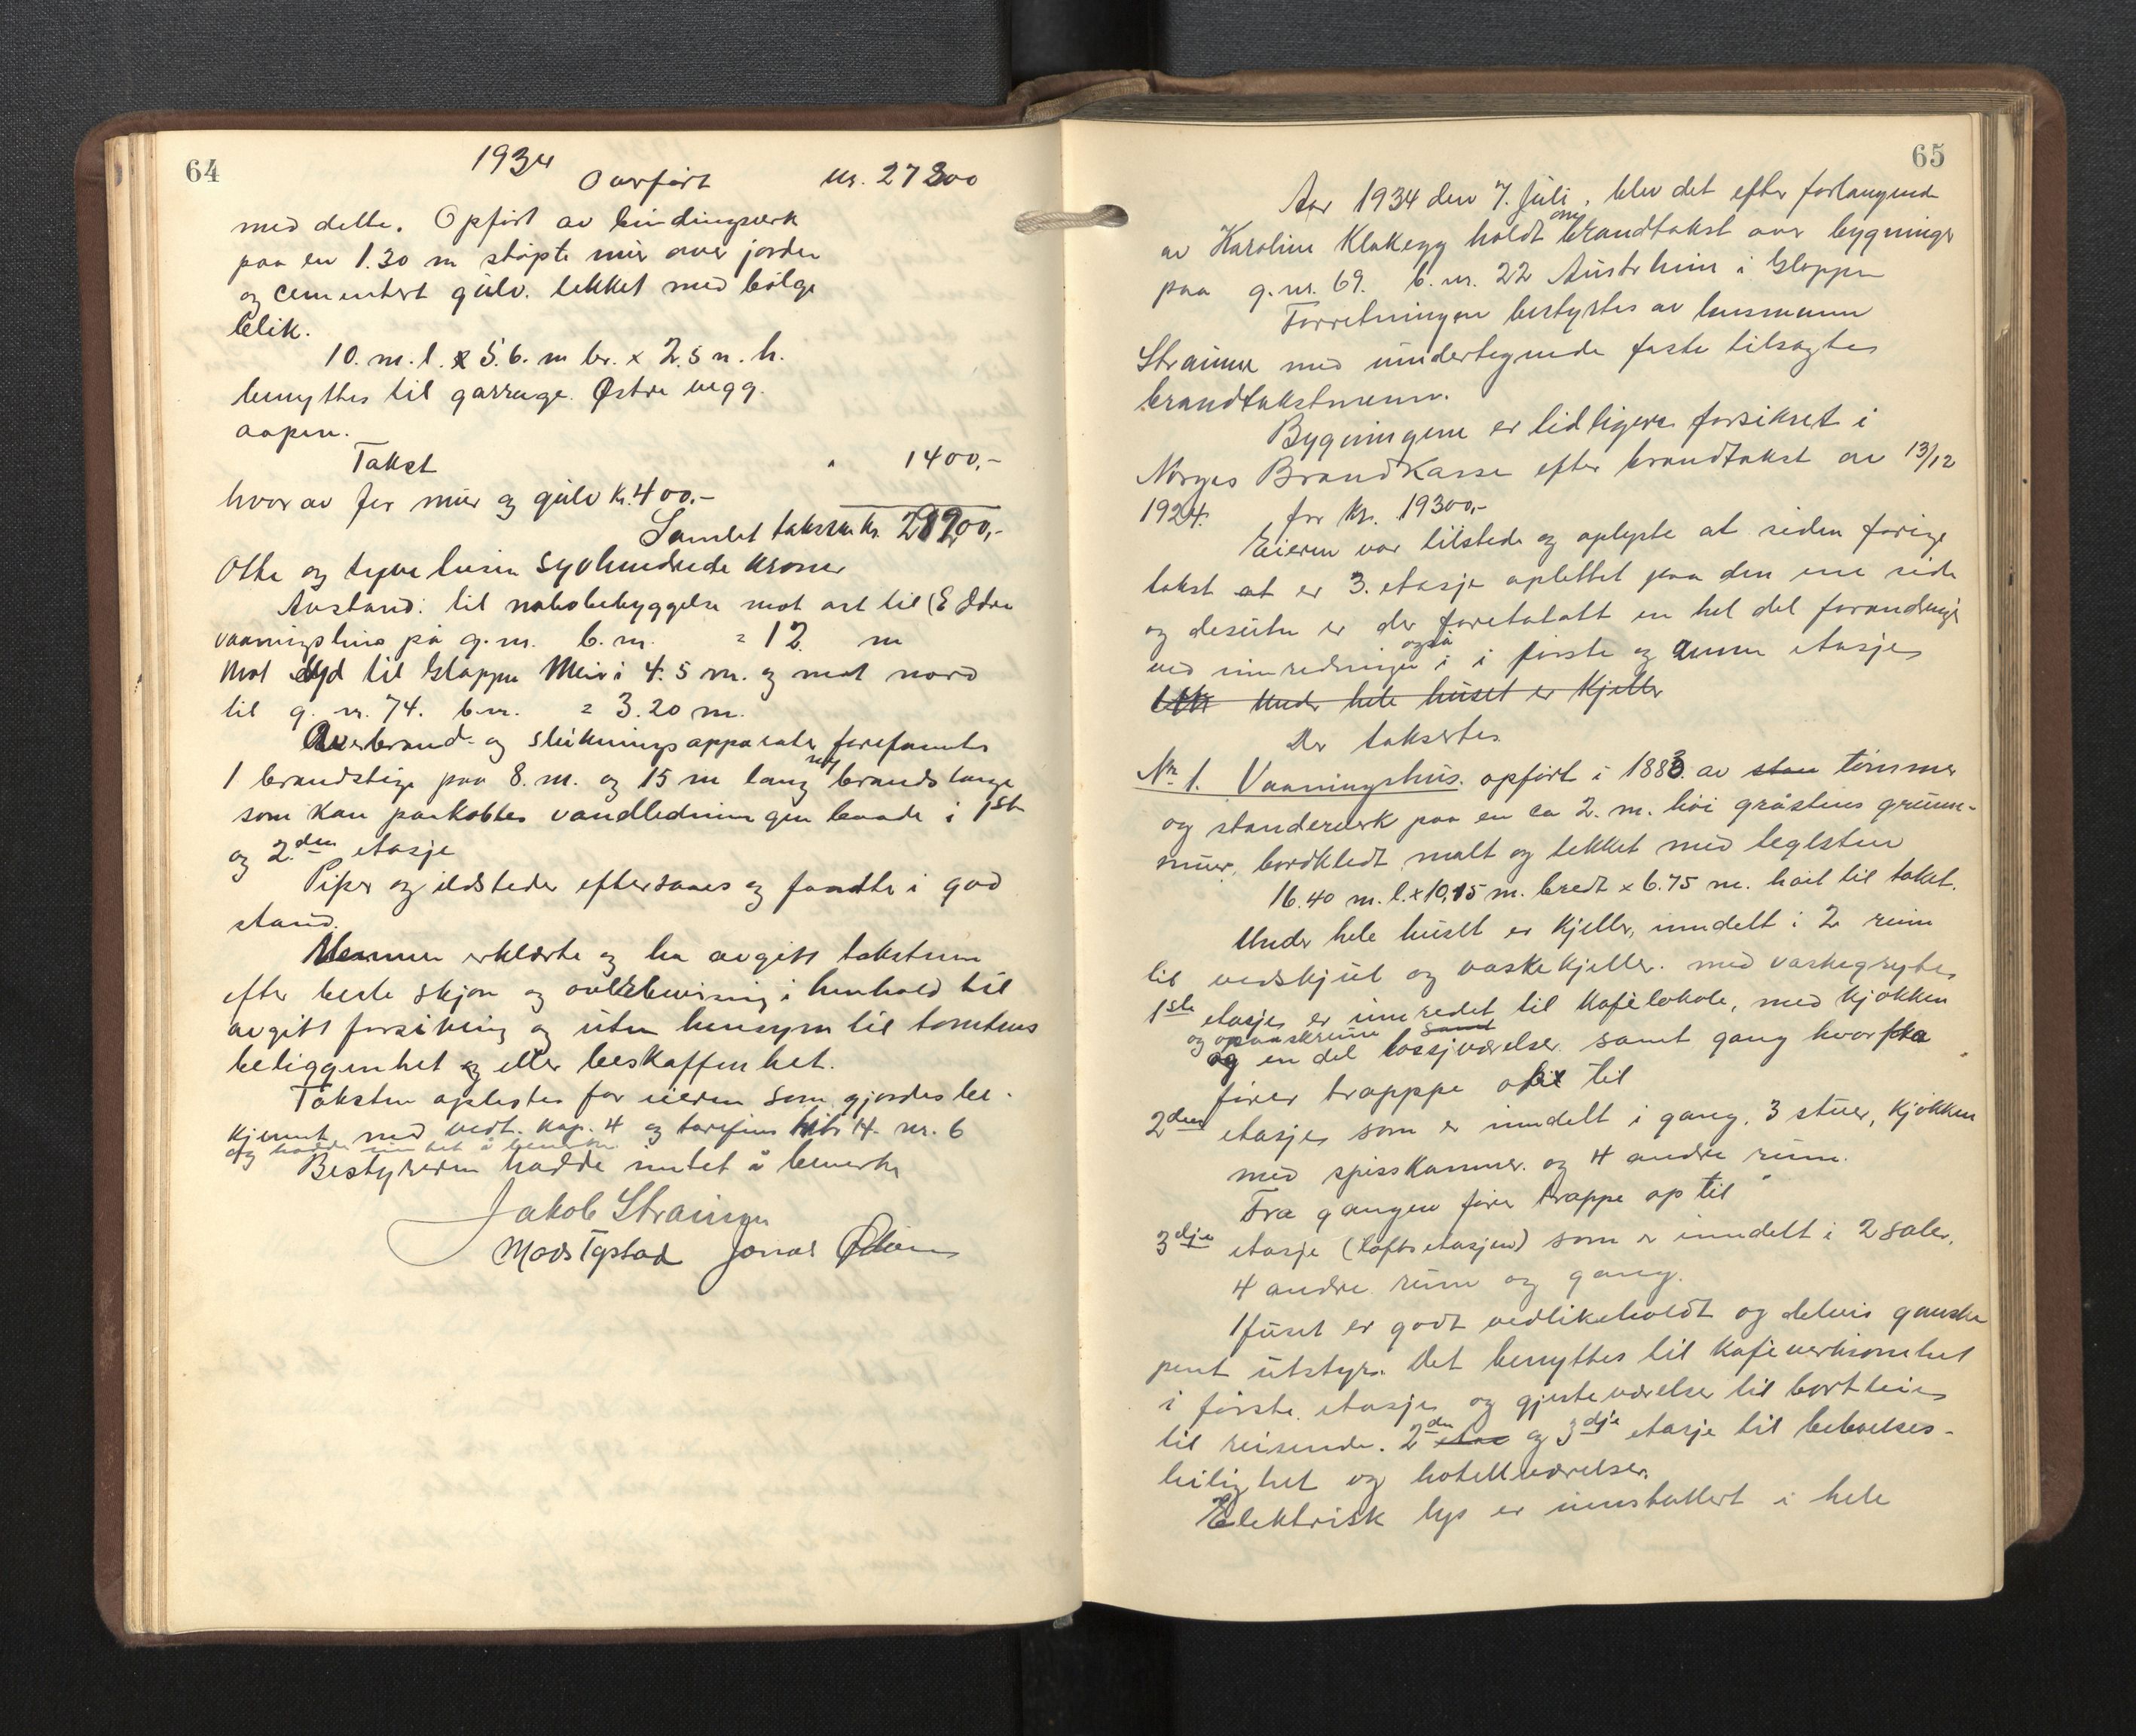 64
1934
Overført kr. 27300
med dette. Opført av bindingsverk
paa en 1.30 m støpte mur over jorden
og cementert gulv. tekket med bølge
blik.
10. m. l. x 5.6. m br. x 2.5 m. h.
benyttes til garrage. Østre vegg.
aapen.
Takst " 1400,-
hvor av for mur og gulv kr. 400.-
Samlet takssum kr. 28700,-
Otte og tyve tusin syvhundrede kroner
Avstand: til nabobebyggelse mot øst til
vaaningshus på g.nr. b.nr. = 12 m
Mot syd til Gloppen Meieri 4.5 m. og mot nord
til g. nr. 74. b.nr. = 3.20 m.
Av brand- og slukningsapparater forefantes
1 brandstige paa 8. m. og 15 m lang brandslange
som kan paakobles vandledningen baade i 1ste
og 2.den etasje
Piper og ildsteder eftersaaes og fandtes i god
stand.
Mennene erklærte og ha avgitt takstsum
efter beste skjøn og overbevisning i henhold til
avgitt forsikring og uten hensyn til tomtens
beliggenhet og eller beskaffenhet.
Taksten oplestes for eieren som gjordes be-
kjennt med vedt. kap. 4 og tarifens litr 14. nr. 6
og hadde intet å bemerke
Bestyreren hadde intet å bemerke
Jakob Straume
Mads Tystad Jonas
65
Aar 1934 den 7. juli, blev det efter forlangende
av Karoline Klakegg holdt ombrandtakst over bygninger
paa g.nr. 69. b.nr. 22 Austrheim i Gloppen
Forretningen bestyrtes av lensmann
Straume med undertegnede faste tilsagte
brandtakstmenn.
Bygningene er tidligere forsikret i
Norges Brandkasse efter brandtakst av 13/12
1924. for kr. 19300,-
Eieren var tilstede og oplyste at siden forige
takst at er 3. etasje oplettet paa den ene side
og desuten er der foretatatt en hel del forandringer
ved innredningen også i i første og annen etasje
Under hele huset er kjeller
Der taksertes
Nr. 1. Vaaningshus. opført i 1883. av stan tømmer
og standerverk paa en ca 2. m. høi gråstens grunn-
mur, bordkledt malt og tekket med teglsten
16.40 m. l. x 10,15 m. bredt x 6.75 m. høit til taket.
Under hele huset er kjeller, inndelt i 2 rum
til vedskjul og vaskekjeller. med vaskegryte
1ste etasje er innredet til kafèlokale, med kjøkken
og opvaskrum samt
og en del lossjværelser samt gang hvor fra
fører trapppe op til
2den etasje som er inndelt i gang, 3 stuer, kjøkken
med spisskammer. og 4 andre rum.
Fra gangen fører trappe op til
3dje etasje (loftsetasjen) som er inndelt i 2 saler,
4 andre rum og gang.
Huset er godt vedlikeholdt og delvis ganske
pent utstyr. Det benyttes til kafèverksomhet
i første etasje og gjesteværelser til bortleie
til reisende. 2den etae og 3dje etasje til beboelses-
leilighet og hotellværelser.
Elektrisk lys er innstallert i hele